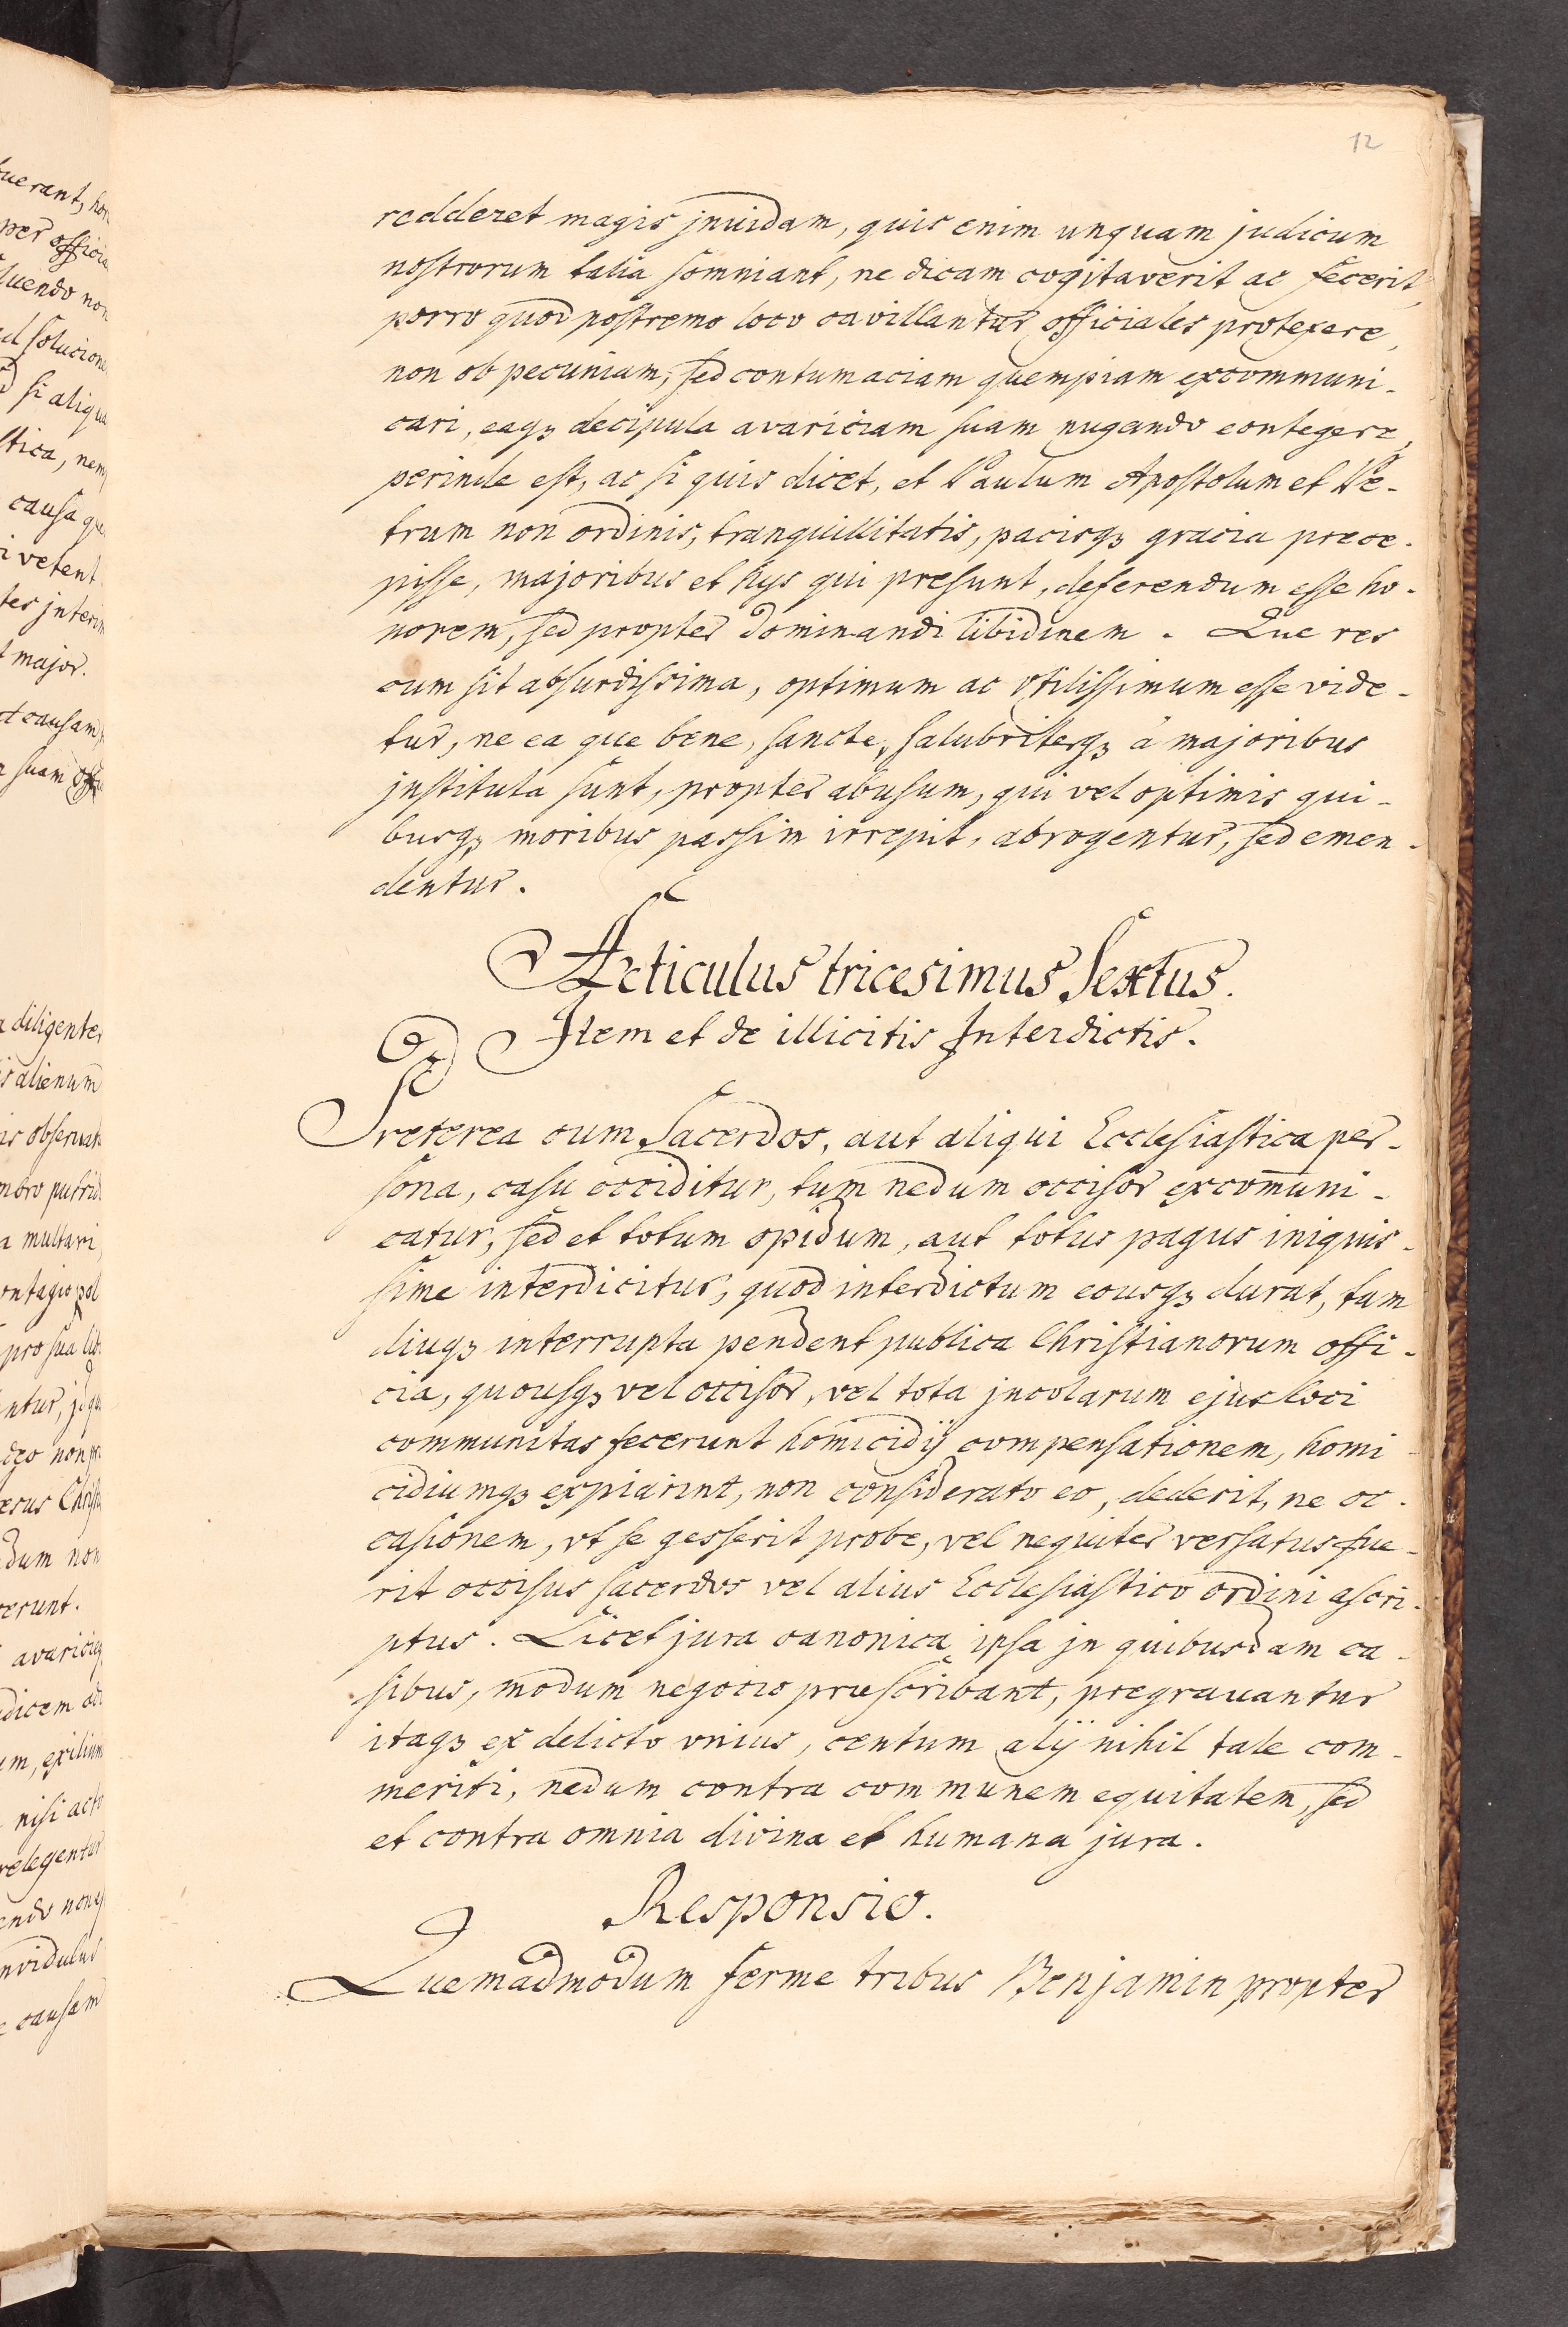 12
redderet magis jnuidam, quis enim unquam judicum
nostrorum talia somniant, ne dicam cogitaverit ac fecerit,
porro quod postremo loco cavillantur officiales protexere,
non ob pecuniam, sed contumaciam quempiam excommuni-
cari, eaqꝫ decipula avariciam suam nugando contegere,
perinde est, ac si quis dicet, et Paulum Apostolum et Pe-
trum non ordinis, tranquillitatis, pacisqꝫ gracia prece-
pisse, majoribus et hys qui presunt, deferendum esse ho-
norem, sed propter dominandi libidinem. Que res
cum sit absurdissima, optimum ac vtilissimum esse vide-
tur, ne ea que bene, sancte, salubriterqꝫ á majoribus
jnstituta sunt, propter abusum, qui vel optimis qui-
busqꝫ moribus passim irrepit, abrogentur, sed emen-
dentur.
Articulus tricesimus Sextus.
Item et de illicitis Interdictis.
Preterea cum Sacerdos, aut aliqui Ecclesiastica per-
sona, casu occiditur, tum nedum occisor excom̄uni-
catur, sed et totum opidum, aut totus pagus iniquis-
sime interdicitur, quod interdictum eousqꝫ durat, tam
diuqꝫ interrupta pendent publica Christianorum offi-
cia, quousqꝫ vel occisor, vel tota jncolarum ejus loci
communitas fecerunt homicidij compensationem, homi
cidiumqꝫ expiarint, non considerato eo, dederit, ne oc-
casionem, vt se gesserit probe, vel nequiter versatus fue-
rit occisus sacerdos vel alius Ecclesiastico ordini ascri-
ptus. Licet jura canonica ipsa jn quibusdam ca-
sibus, modum negocio præscribant, pregrauantur
itaqꝫ ex delicto vnius, centum alij nihil tale com-
meriti, nedum contra communem equitatem, sed
et contra omnia divina et humana jura.
Responsio.
Quemadmodum ferme tribus Benjamin propter